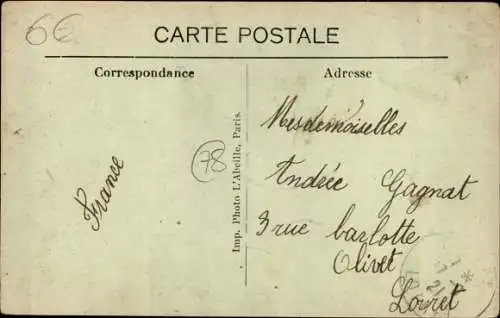 6€
CARTE POSTALE
Correspondance
Adresse
Franse
78
Imp. Photo L'Abeille, Paris.
Mesdemoiselles
Andrée Gagnat
3 rue barlotte
Olivet
Loiret